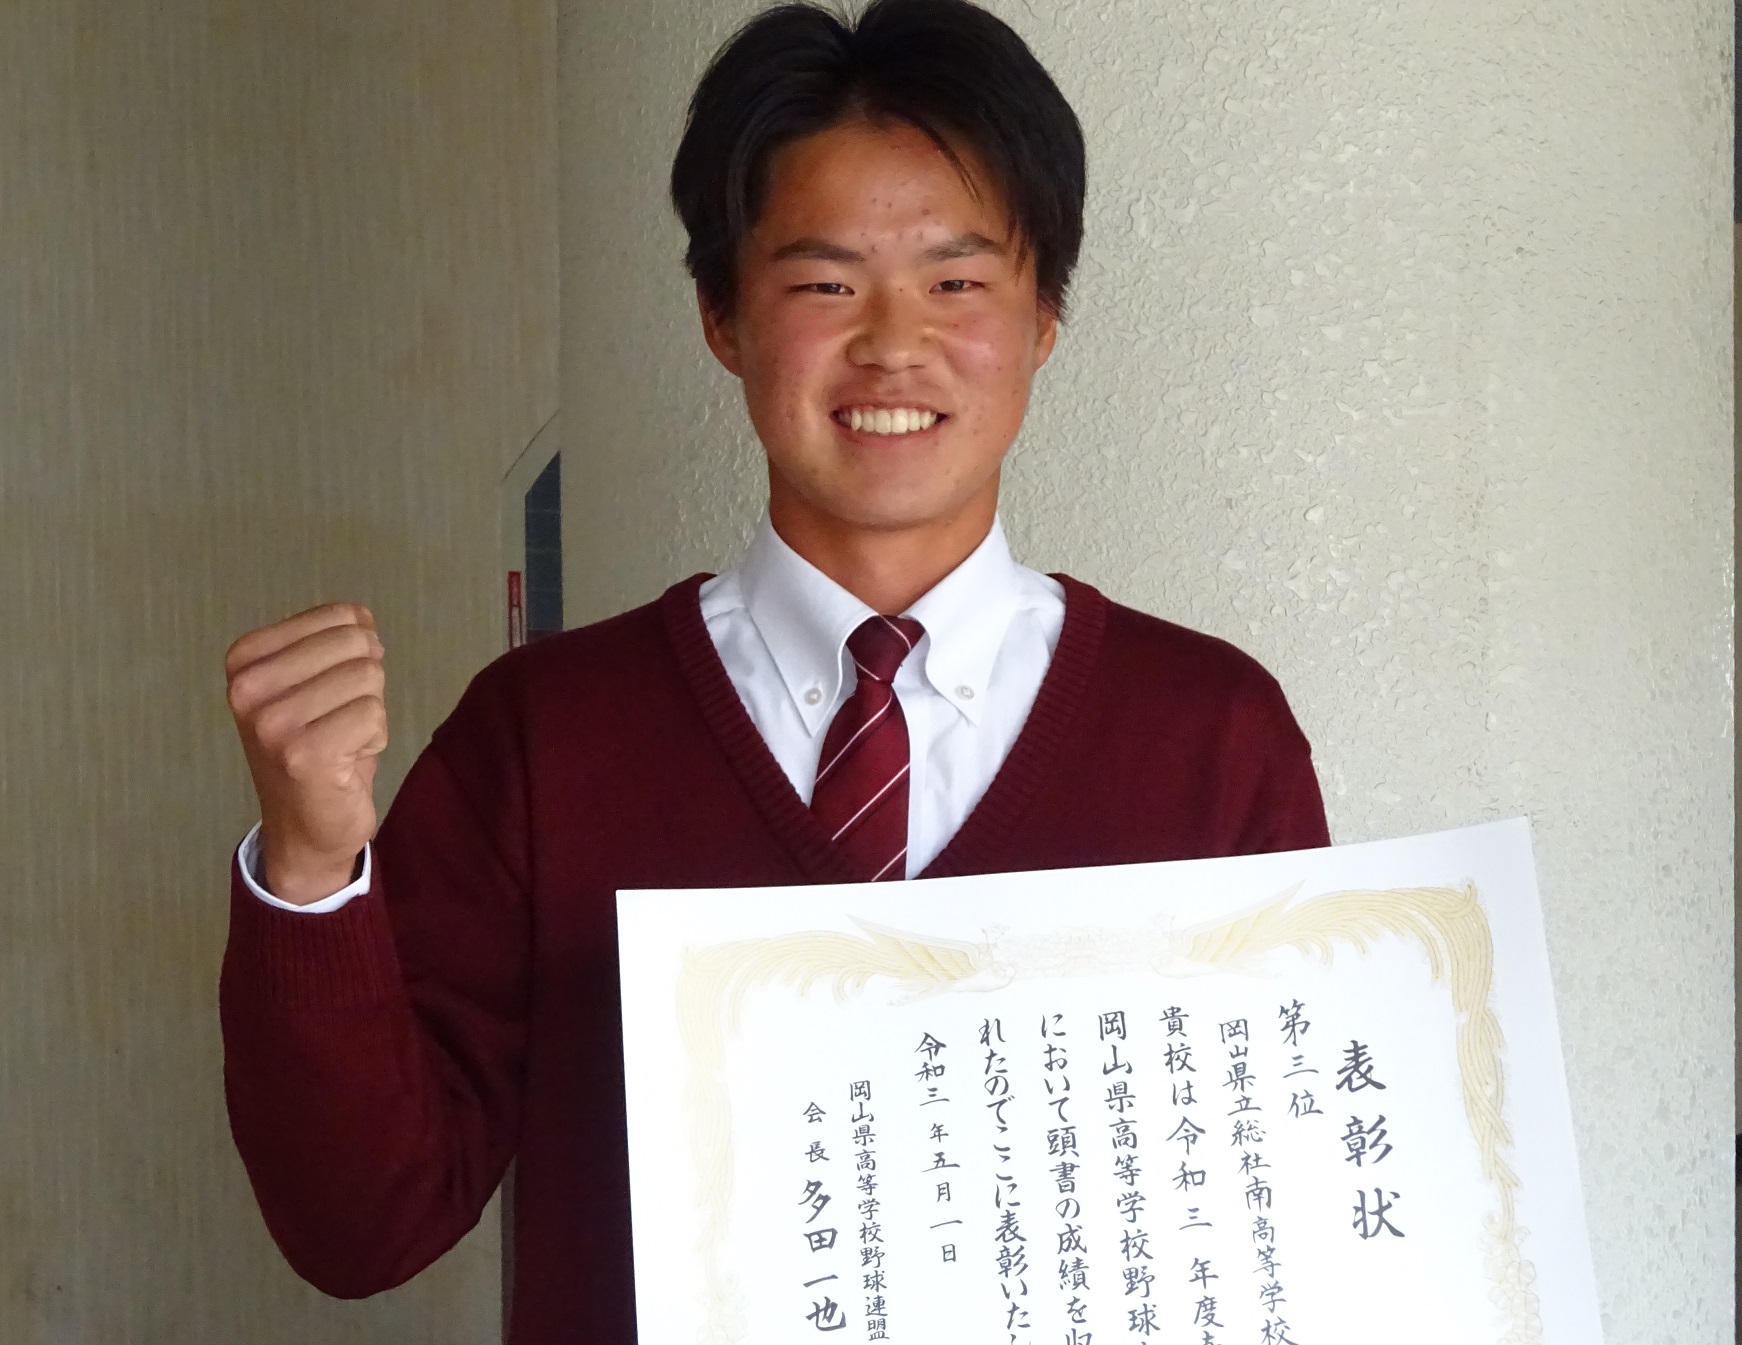 表彰状
第三位
岡山県立総社南高等学校
貴校は令和三年度春
岡山県高等学校野球
において頭書の成績を収
れたのでここに表彰いたし
令和三年五月一日
岡山県高等学校野球連盟
会長 多田一也